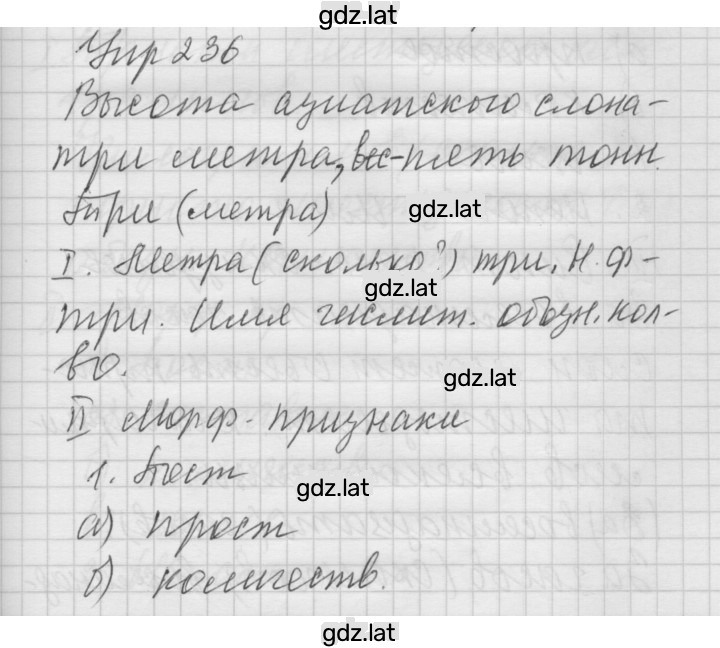 gdz.lat
Упр 236
Высота азиатского слона-
три метра, вес-пять тонн.
Три (метра) gdz.lat
I. Метра (сколько?) три. Н.ф-
gdz.lat
три. Имя числит. обозн. кол-
во.
gdz.lat
II Морф- признаки
1. Пост
gdz.lat
а) прост
б) количеств.
gdz.lat